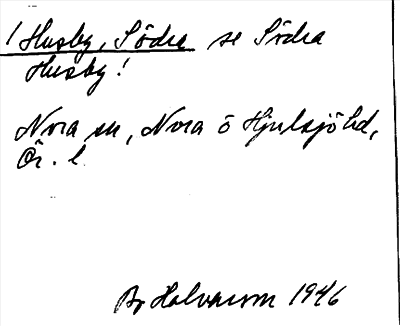 1 Husby, Södra se Södra
Husby!
Nora sn, Nora ö Hjulsjö hd,
Ör. l.
Br Halvarson 1946